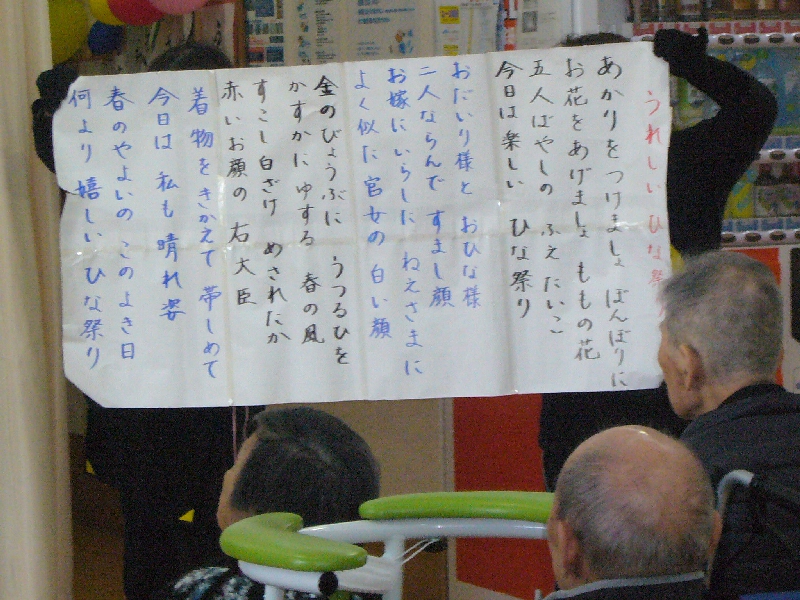 うれしいひな祭
あかりをつけましょ ぼんぼりに
お花をあげましょ ももの花
五人ばやしの ふえ たいこ
今日は楽しい ひな祭り
おだいり様と おひな様
二人ならんで すまし顔
お嫁にいらした ねえさまに
よく似た官女の 白い顔
金のびょうぶに うつるひを
かすかにゆする 春の風
すこし白ざけ めされたか
赤いお顔の 右大臣
着物をきかえて 帯しめて
今日は 私も 晴れ姿
春のやよいの このよき日
何より嬉しいひな祭り